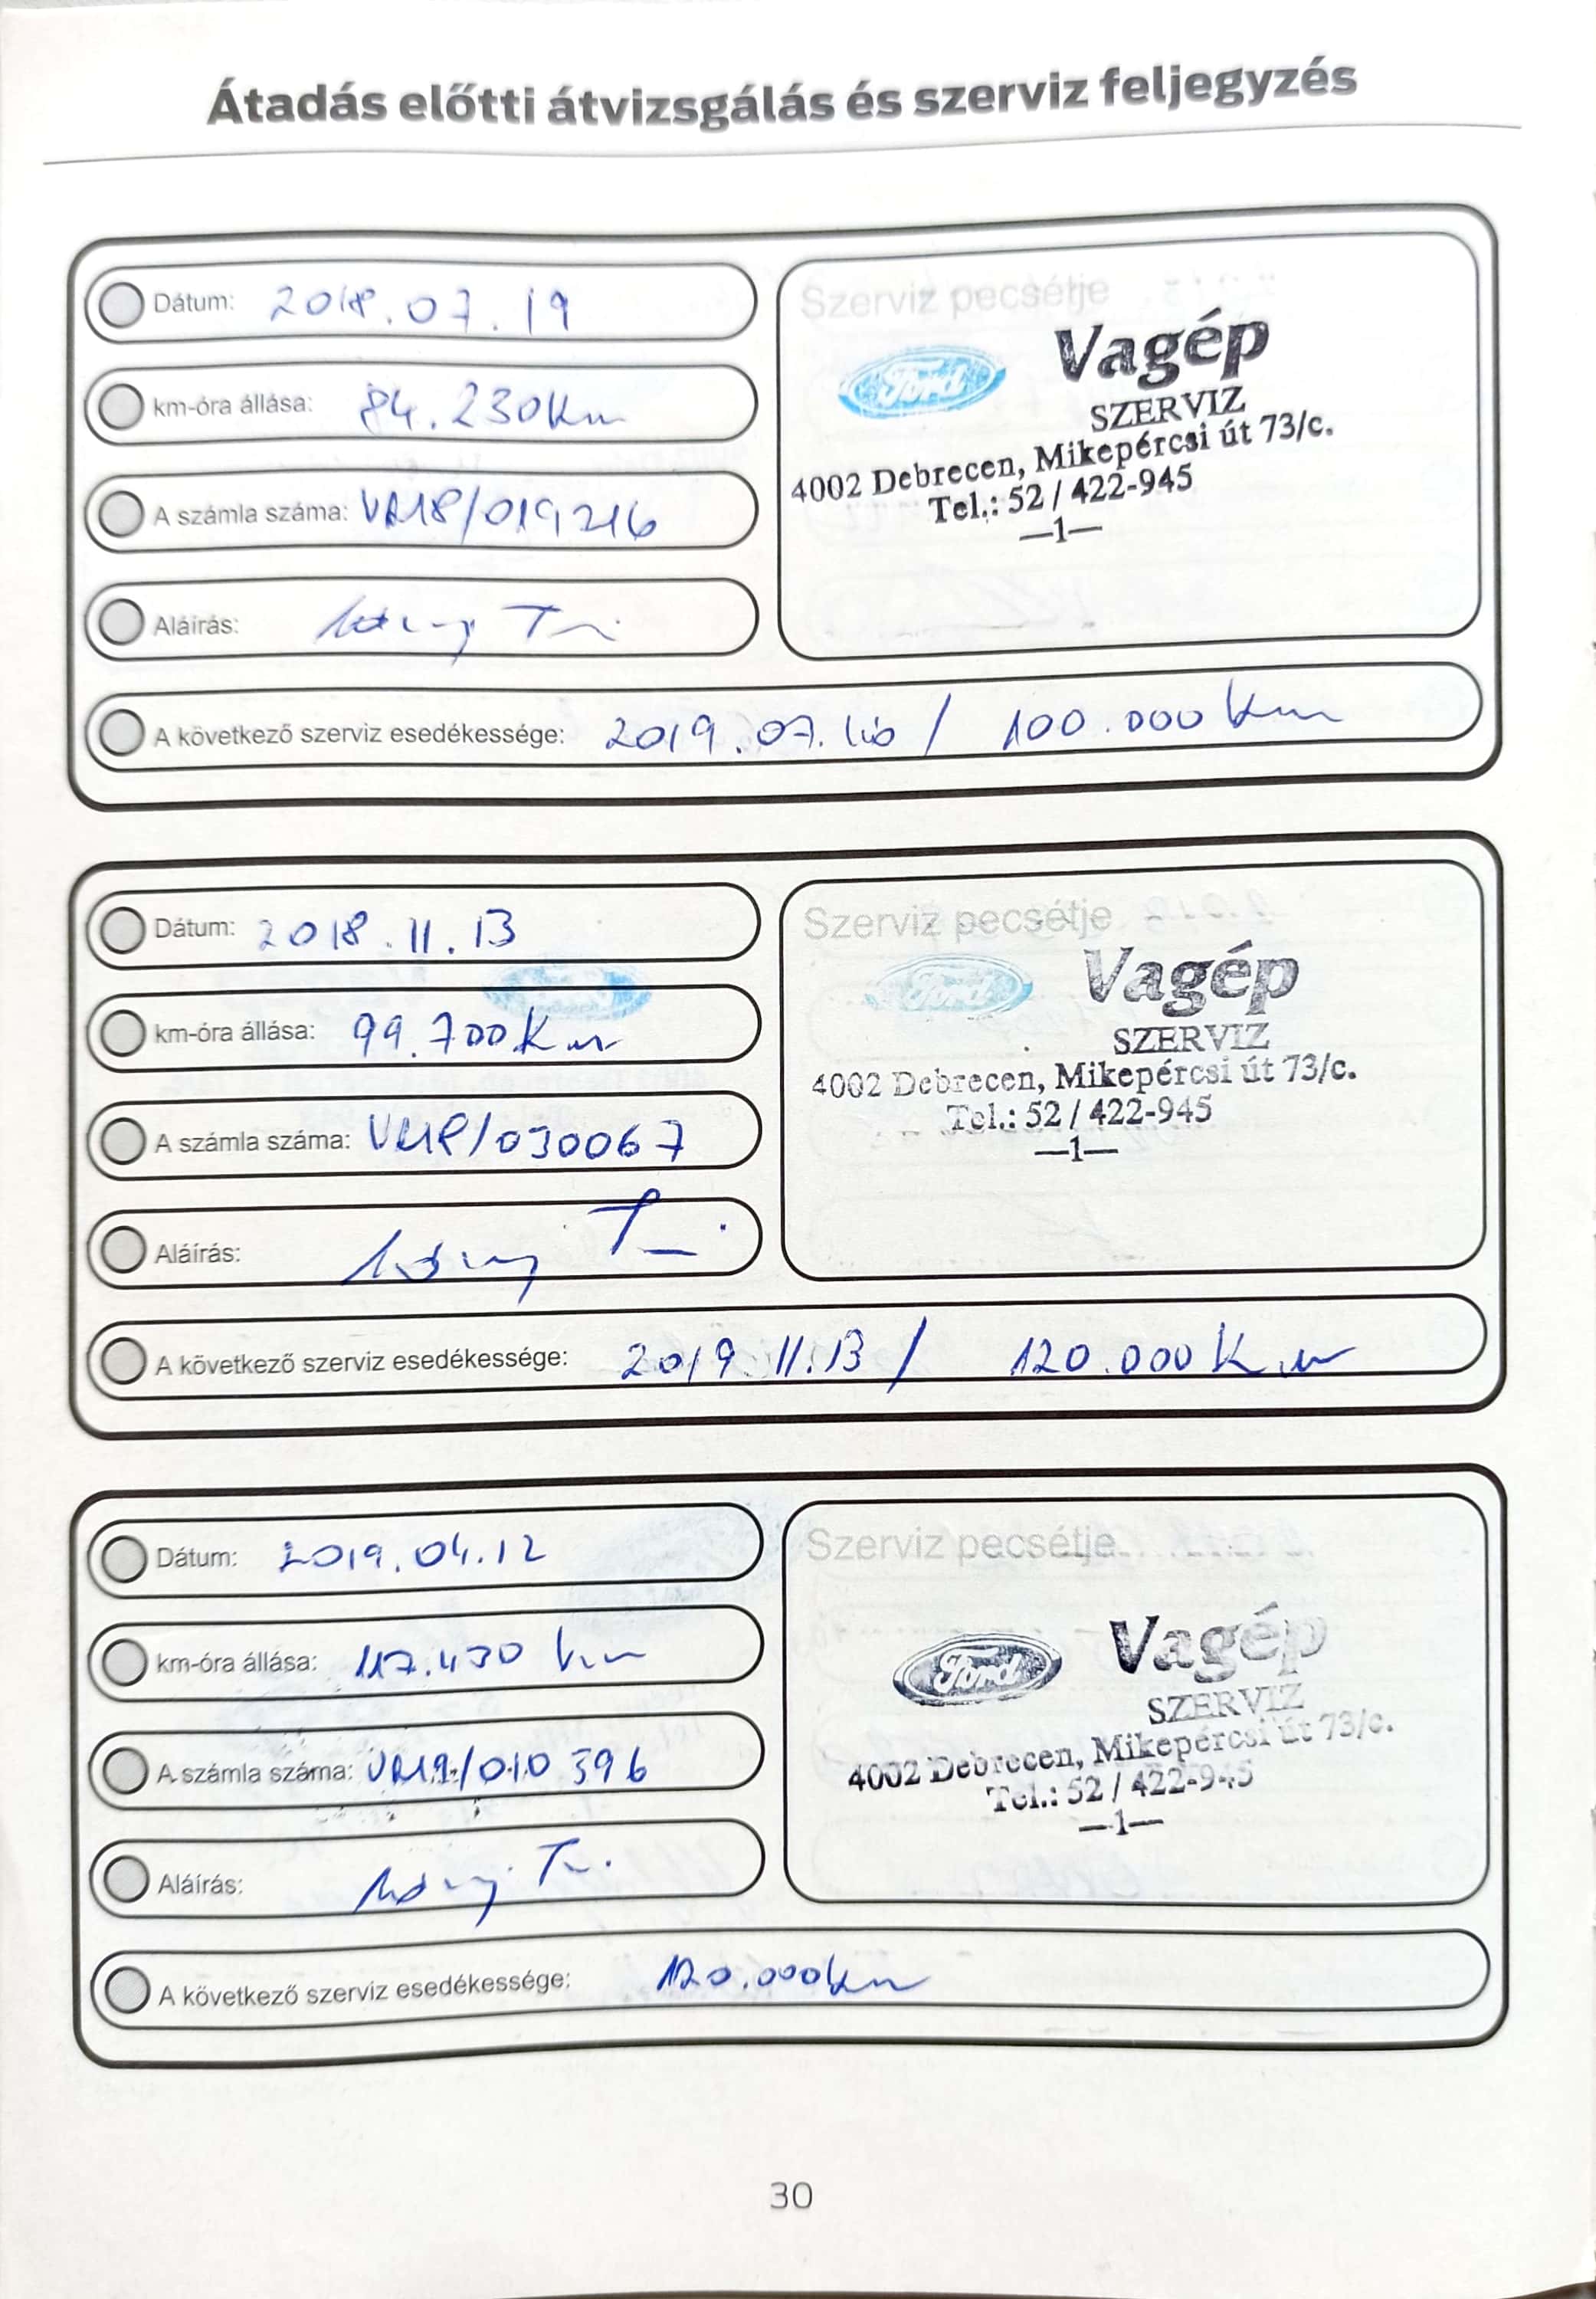 Átadás előtti átvizsgálás és szerviz feljegyzés
Dátum: 2018.07.19
km-óra állása: 84.230 Km
A számla száma: VM18/019216
Aláírás:
A következő szerviz esedékessége: 2019.07. / 100.000 Km
Szerviz pecsétje
Ford Vagép
SZERVIZ
4002 Debrecen, Mikepércsi út 73/c.
Tel.: 52 / 422-945
—1—
Dátum: 2018.11.13
km-óra állása: 99.700 Km
A számla száma: VM18/030067
Aláírás:
A következő szerviz esedékessége: 2019.11.13 / 120.000 Km
Szerviz pecsétje
Ford Vagép
SZERVIZ
4002 Debrecen, Mikepércsi út 73/c.
Tel.: 52 / 422-945
—1—
Dátum: 2019.04.12
km-óra állása: 117.430 km
A számla száma: VM19/010396
Aláírás:
A következő szerviz esedékessége: 120.000 km
Szerviz pecsétje
Ford Vagép
SZERVIZ
4002 Debrecen, Mikepércsi út 73/c.
Tel.: 52 / 422-945
—1—
30